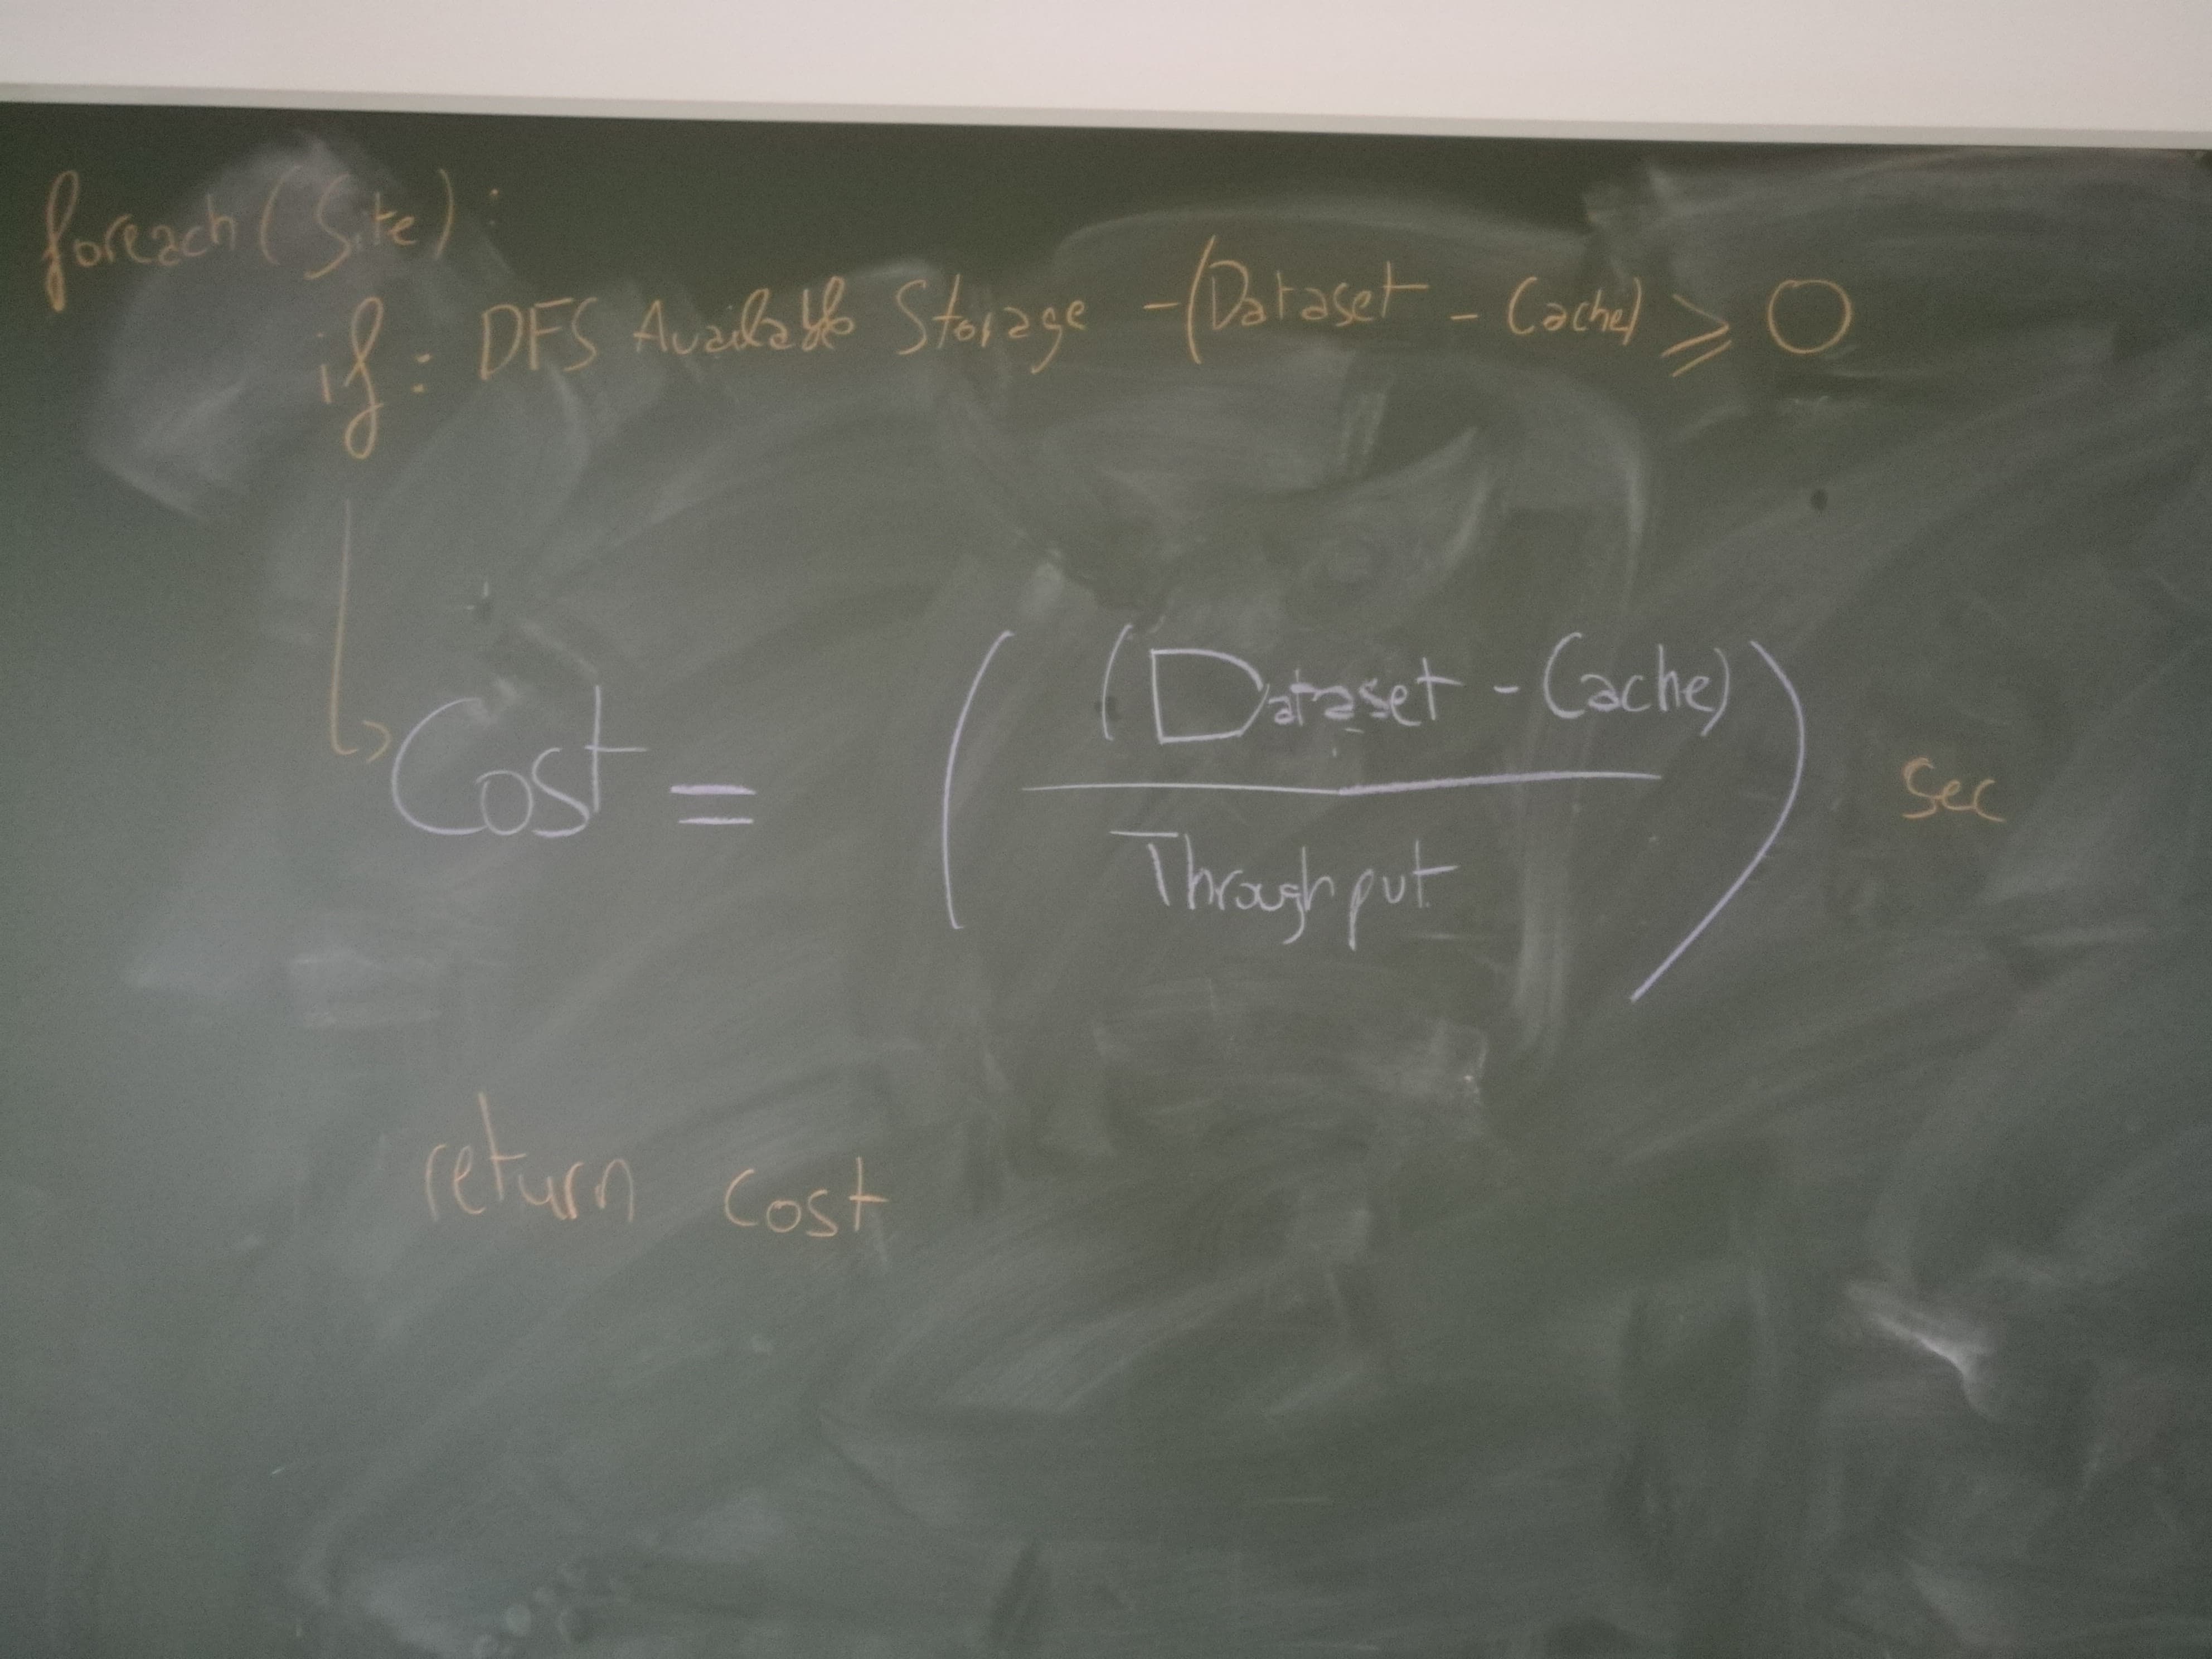 foreach(Site):
if: DFS Available Storage -(Dataset - Cache) ⩾ 0
Cost = ( (Dataset - Cache) ) sec
Throughput
return cost